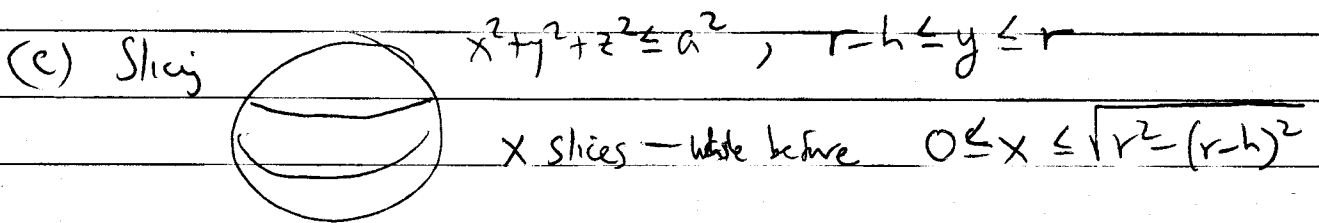 (c) Slicing x²+y²+z² ≤ a², r-h ≤ y ≤ r
x slices — before 0 ≤ x ≤ √(r²-(r-h)²)